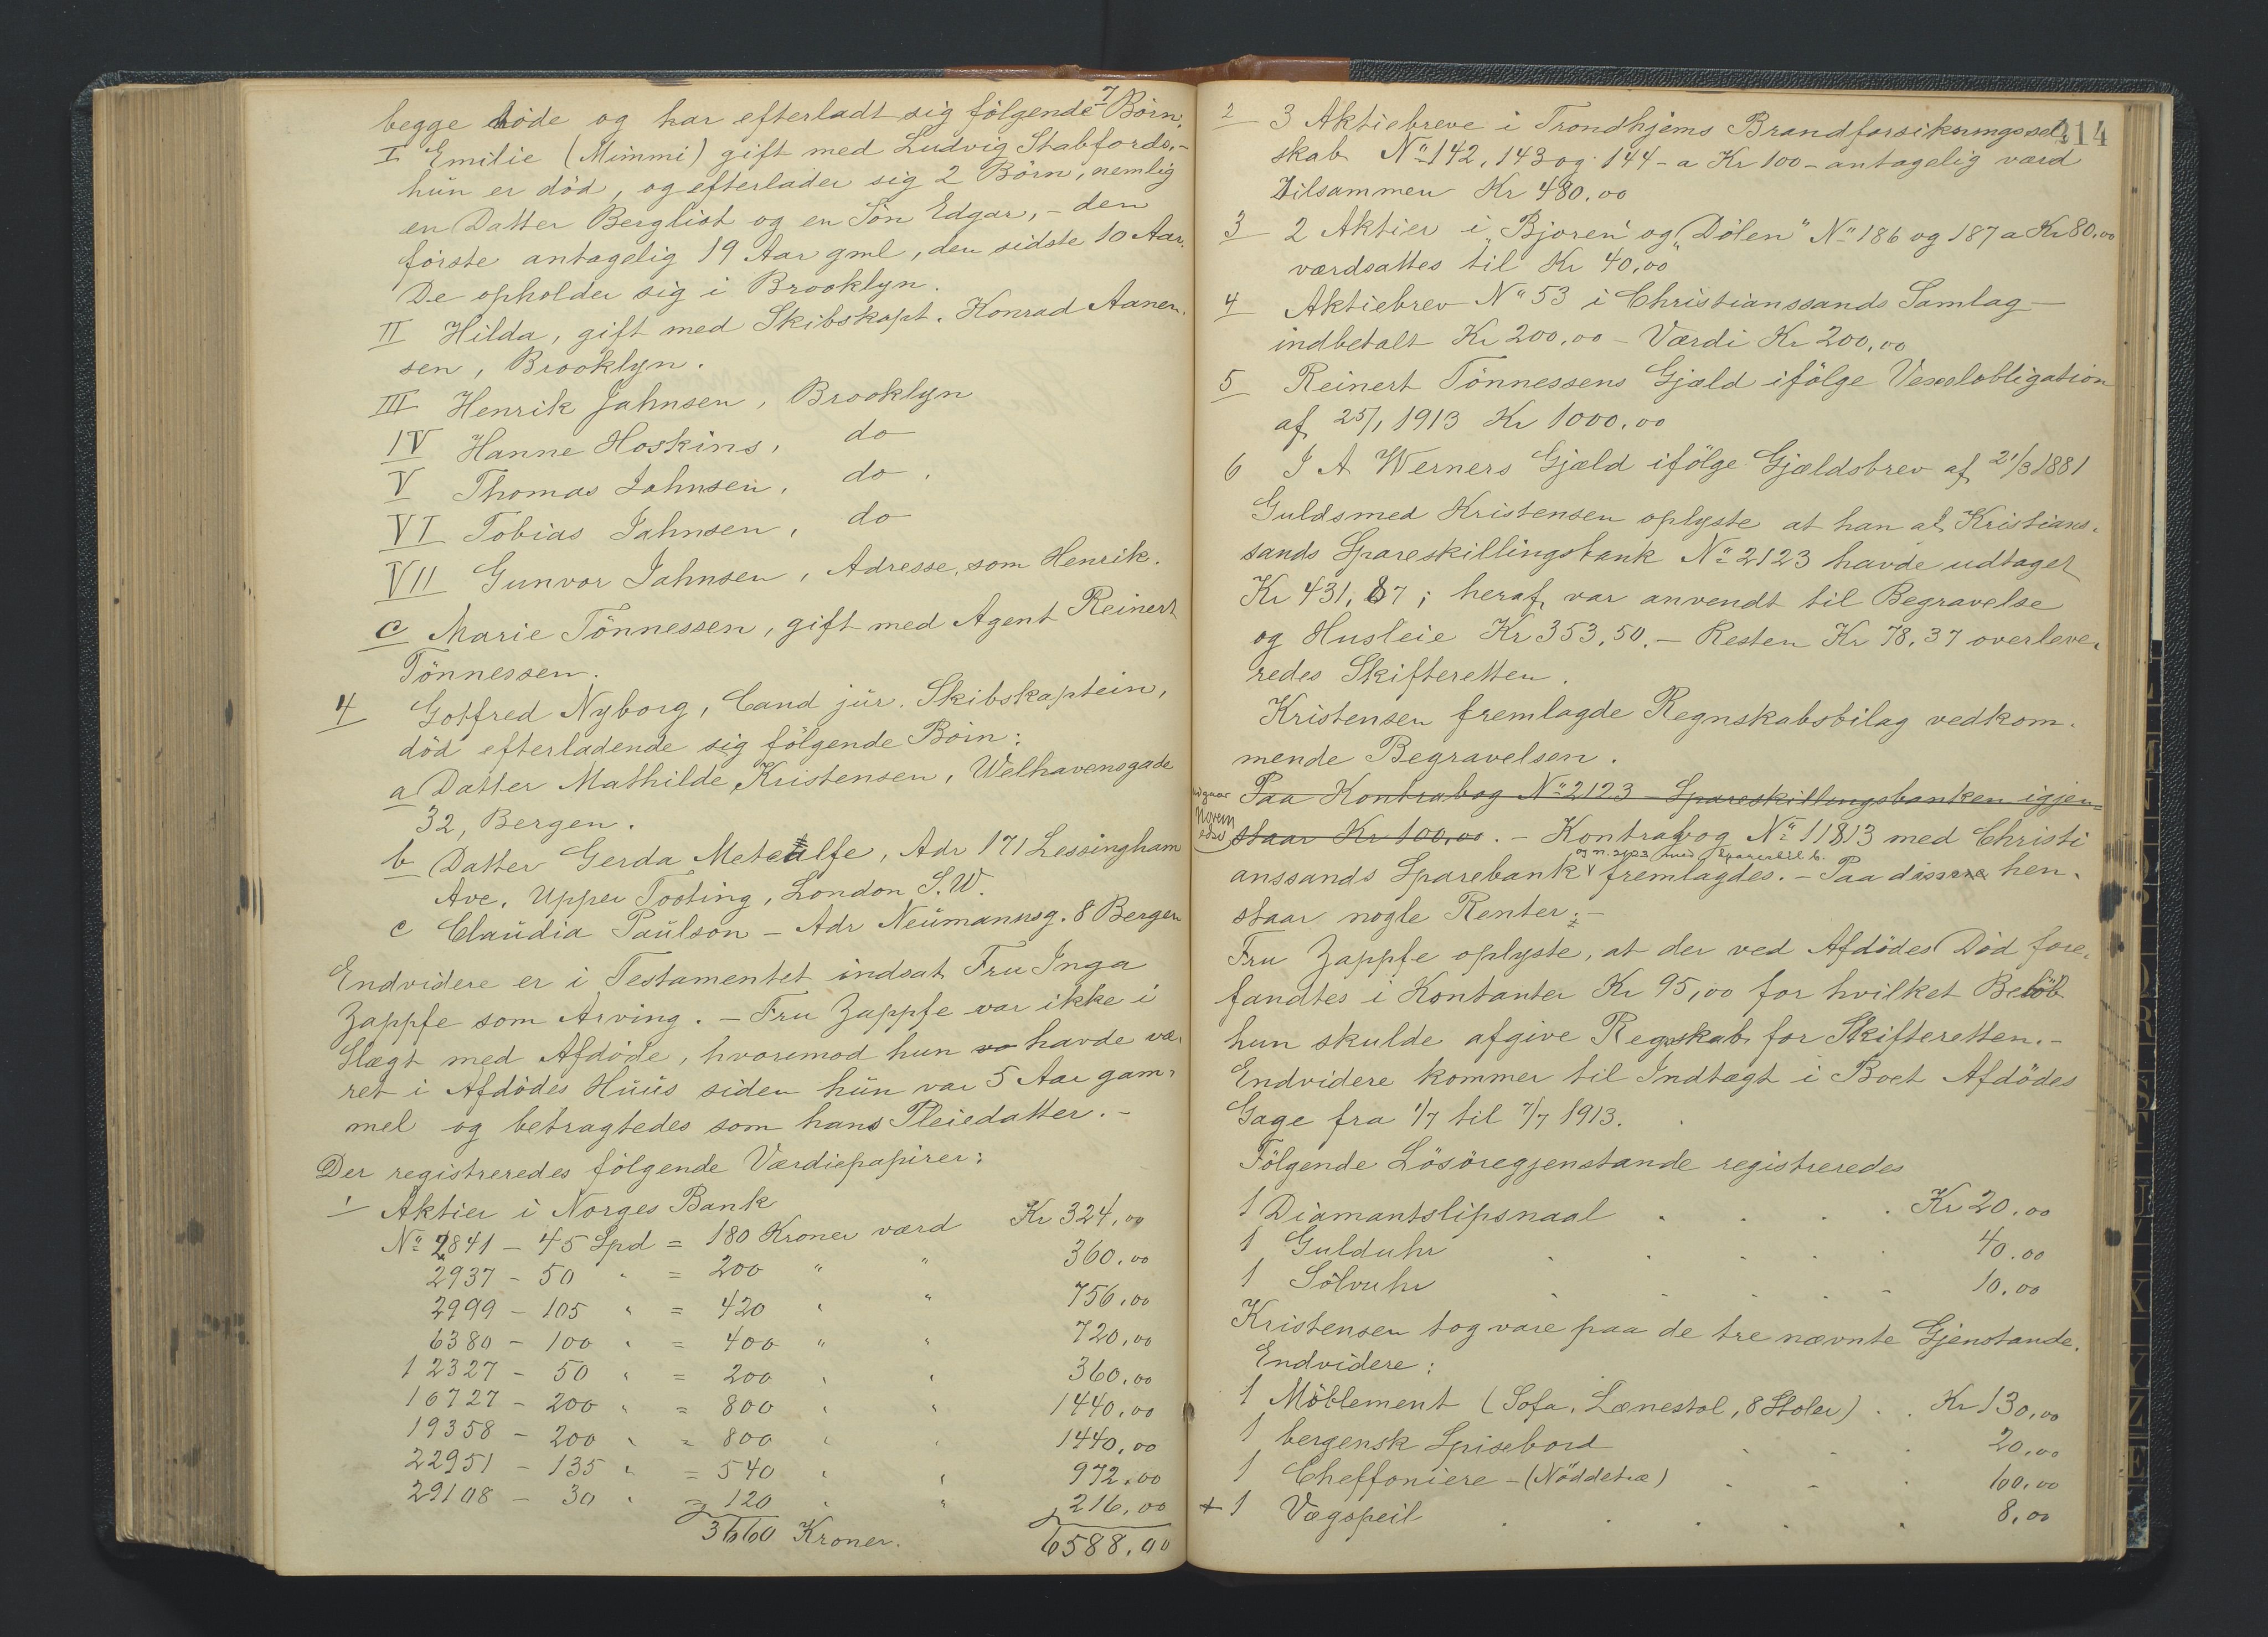 begge døde og har efterladt sig følgende 7 Børn:
I Emilie (Mimmi) gift med Ludvig Stabfords,-
hun er død, og efterlader sig 2 Børn, nemlig
en Datter Bergliot og en Søn Edgar, - den
første antagelig 19 Aar gml, den sidste 10 Aar.
De opholder sig i Brooklyn.
II Hilda, gift med Skibskapt. Konrad Aanen-
sen, Brooklyn.
III Henrik Jahnsen, Brooklyn
IV Hanne Hoskins, do
V Thomas Jahnsen, do.
VI Tobias Jahnsen, do
VII Gunvor Jahnsen, Adresse, som Henrik.
c Marie Tönnessen, gift med Agent Reinert
Tönnessen.
4 Gotfred Nyborg, Cand jur. Skibskaptein,
død efterladende sig følgende Børn:
a Datter Mathilde Kristensen, Welhavensgade
32, Bergen.
b Datter Gerda Metcalfe, Adr 171 Lessingham
Ave, Upper Tooting, London S.W.
c Claudia Paulson - Adr Neumannsg. 8 Bergen
Endvidere er i Testamentet indsat Fru Inga
Zappfe som Arving. - Fru Zappfe var ikke i
Slægt med Afdøde, hvoremod hun va havde væ-
ret i Afdødes Huus siden hun var 5 Aar gam-
mel og betragtedes som hans Pleiedatter. -
Der registreredes følgende Værdiepapirer:
1 Aktier i Norges Bank
No 2841 - 45 Spd = 180 Kroner værd Kr 324,00
2937 - 50 " = 200 " " 360,00
2999 - 105 " = 420 " " 756,00
6380 - 100 " = 400 " " 720,00
12327 - 50 " = 200 " " 360,00
16727 - 200 " = 800 " " 1440,00
19358 - 200 " = 800 " " 1440,00
22951 - 135 " = 540 " " 972,00
29108 - 30 " = 120 " " 216,00
3660 Kroner. 6588,00
214
2 3 Aktiebreve i Trondhjems Brandforsikringssel-
skab No 142, 143 og 144 - a Kr 100 - antagelig værd
Tilsammen Kr 480,00
3 2 Aktier i "Bjoren" og "Dölen" No 186 og 187 a Kr 80,00
værdsattes til Kr 40,00
4 Aktiebrev No 53 i Christianssands Samlag -
indbetalt Kr 200,00 - Værdi Kr 200,00
5 Reinert Tönnessens Gjæld ifölge Vexelobligation
af 25/1 1913 Kr 1000,00
6 J A Werners Gjæld ifölge Gjældsbrev af 21/3 1881
Guldsmed Kristensen oplyste at han af Kristians-
sands Spareskillingsbank No 2123 havde udtaget
Kr 431,87; heraf var anvendt til Begravelse
og Husleie Kr 353,50. - Resten Kr 78,37 overleve-
redes Skifteretten.
Kristensen fremlagde Regnskabsbilag vedkom-
mende Begravelsen.
udgaar
Paa Kontrabog No 2123 - Spareskillingsbanken igjen-
staar Kr 100,00. - Kontrabog No 11813 med Christi
og n. 2123 med Spareskil b.
anssands Sparebank fremlagdes. - Paa disse hen-
staar nogle Renter: -
Fru Zappfe oplyste, at der ved Afdødes Død fore-
fandtes i Kontanter Kr 95,00 for hvilket Beløb
hun skulde afgive Regnskab for Skifteretten. -
Endvidere kommer til Indtægt i Boet Afdødes
Gage fra 1/7 til 7/7 1913.
Følgende Løsøregjenstande registreredes
1 Diamantslipsnaal . . . . Kr 20,00
1 Gulduhr . . . . . 40,00
1 Sølvuhr . . . . . 10,00
Kristensen tog vare paa de tre nævnte Gjenstande.
Endvidere:
1 Møblement (Sofa, Lænestol, 8 Stoler) . . Kr 130,00
1 bergensk Spisebord . . . 20,00
1 Cheffoniere - (Nøddetræ) . . . 100,00
+ 1 Vægspeil . . . . . 8,00